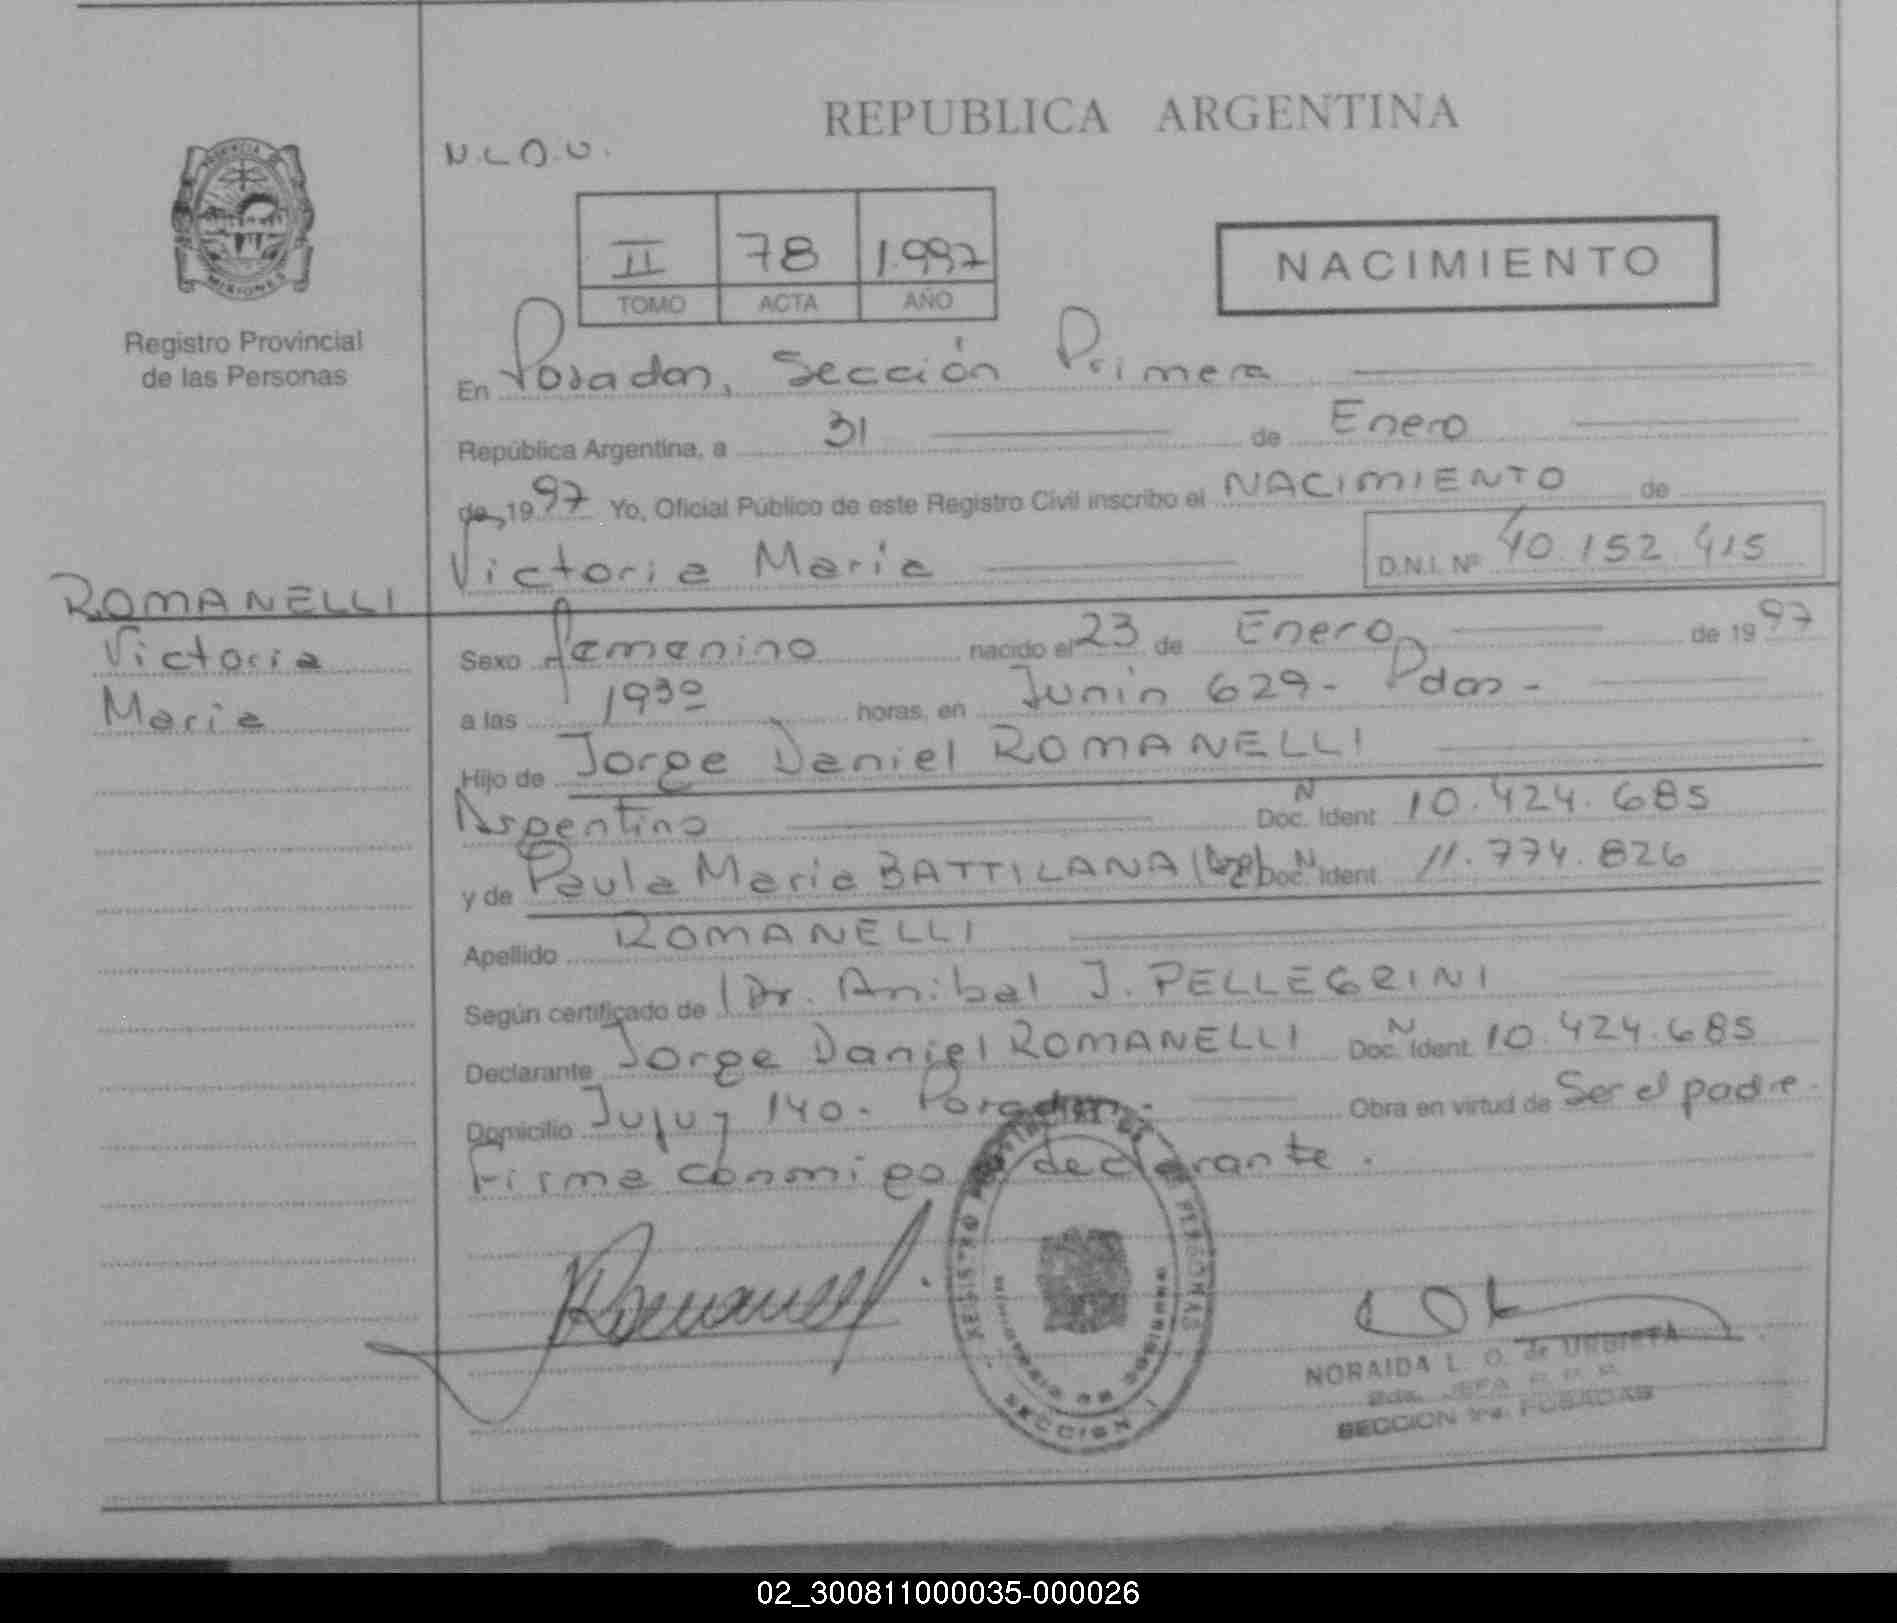 REPUBLICA ARGENTINA
N.L.O.U.
PROVINCIA
MISIONES
Registro Provincial
de las Personas
II 78 1.997
TOMO ACTA AÑO
NACIMIENTO
En Posadas, Sección Primera
República Argentina, a 31 de Enero
de 1997 Yo, Oficial Público de este Registro Civil inscribo el NACIMIENTO de
Victoria María D.N.I. Nº 40.152.415
ROMANELLI
Victoria
María
Sexo femenino nacido el 23 de Enero de 1997
a las 1930 horas, en Junín 629- Pdas-
Hijo de Jorge Daniel ROMANELLI
Argentino Doc. N Ident 10.424.685
y de Paula María BATTILANA (Arg) Doc. N Ident 11.774.826
Apellido ROMANELLI
Según certificado de Dr. Anibal J. PELLEGRINI
Declarante Jorge Daniel ROMANELLI Doc. N Ident 10.424.685
Domicilio Jujuy 140- Posadas- Obra en virtud de Ser el padre.
Firma conmigo el declarante.
REGISTRO PROVINCIAL DE LAS PERSONAS
SECCION 1
NORAIDA L. O. de URBIETA
JEFA R. P. P.
SECCION 1ra. POSADAS
02_300811000035-000026